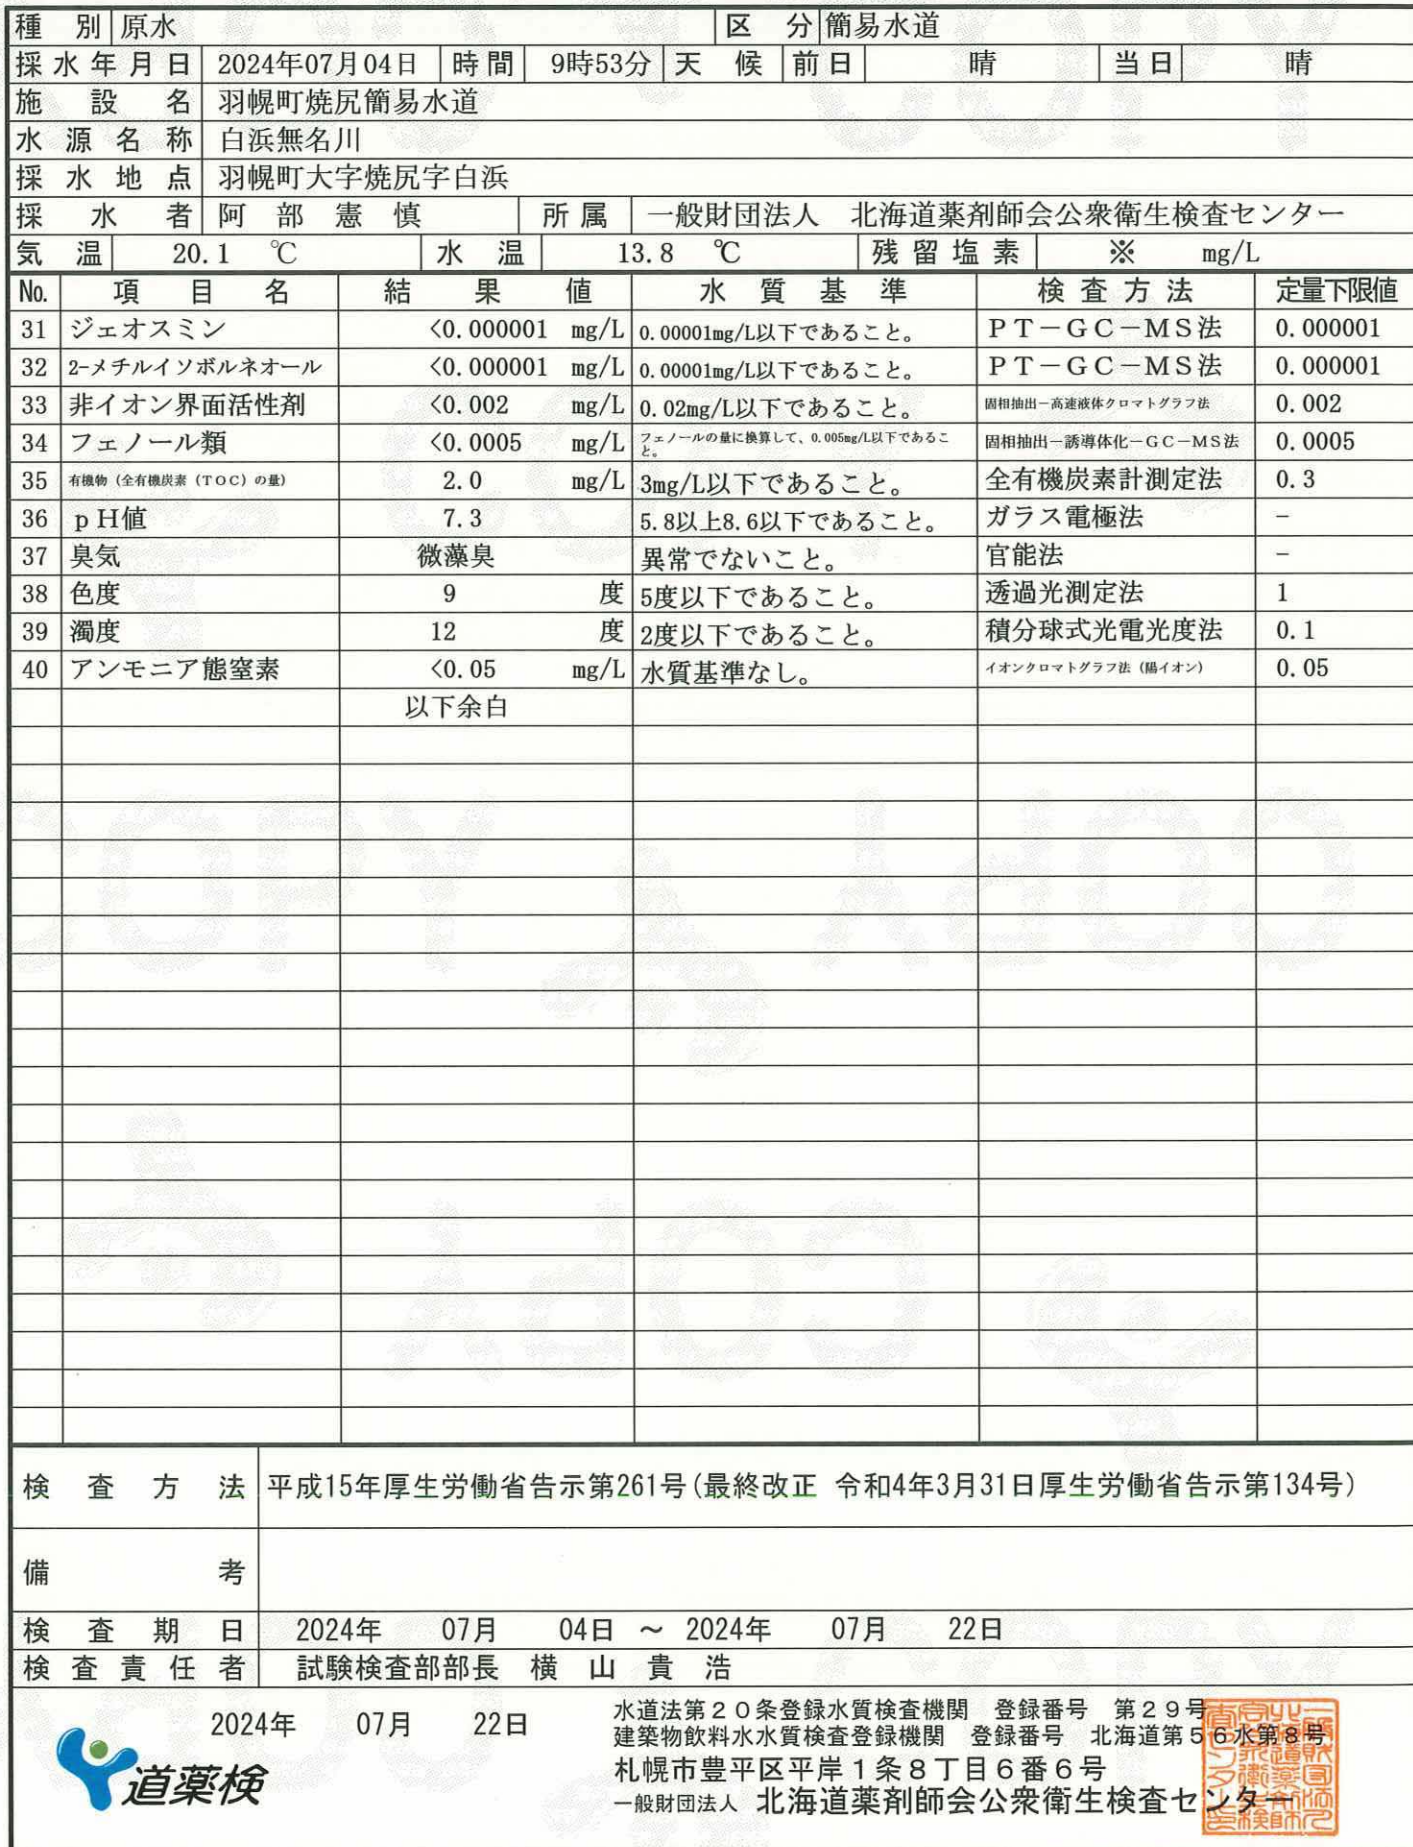 種別 原水 区分 簡易水道
採水年月日 2024年07月04日 時間 9時53分 天候 前日 晴 当日 晴
施設名 羽幌町焼尻簡易水道
水源名称 白浜無名川
採水地点 羽幌町大字焼尻字白浜
採水者 阿部憲慎 所属 一般財団法人 北海道薬剤師会公衆衛生検査センター
気温 20.1 ℃ 水温 13.8 ℃ 残留塩素 ※ mg/L
No. 項目名 結果値 水質基準 検査方法 定量下限値
31 ジェオスミン <0.000001 mg/L 0.00001mg/L以下であること。 PT－GC－MS法 0.000001
32 2-メチルイソボルネオール <0.000001 mg/L 0.00001mg/L以下であること。 PT－GC－MS法 0.000001
33 非イオン界面活性剤 <0.002 mg/L 0.02mg/L以下であること。 固相抽出－高速液体クロマトグラフ法 0.002
34 フェノール類 <0.0005 mg/L フェノールの量に換算して、0.005mg/L以下であること。 固相抽出－誘導体化－GC－MS法 0.0005
35 有機物（全有機炭素（TOC）の量） 2.0 mg/L 3mg/L以下であること。 全有機炭素計測定法 0.3
36 pH値 7.3 5.8以上8.6以下であること。 ガラス電極法 －
37 臭気 微藻臭 異常でないこと。 官能法 －
38 色度 9 度 5度以下であること。 透過光測定法 1
39 濁度 12 度 2度以下であること。 積分球式光電光度法 0.1
40 アンモニア態窒素 <0.05 mg/L 水質基準なし。 イオンクロマトグラフ法（陽イオン） 0.05
以下余白
検査方法 平成15年厚生労働省告示第261号(最終改正 令和4年3月31日厚生労働省告示第134号)
備考
検査期日 2024年 07月 04日 ～ 2024年 07月 22日
検査責任者 試験検査部部長 横山貴浩
2024年 07月 22日
道薬検
水道法第２０条登録水質検査機関 登録番号 第２９号
建築物飲料水水質検査登録機関 登録番号 北海道第５６水第８号
札幌市豊平区平岸１条８丁目６番６号
一般財団法人 北海道薬剤師会公衆衛生検査センター
COPY
COPY
COPY
COPY
COPY